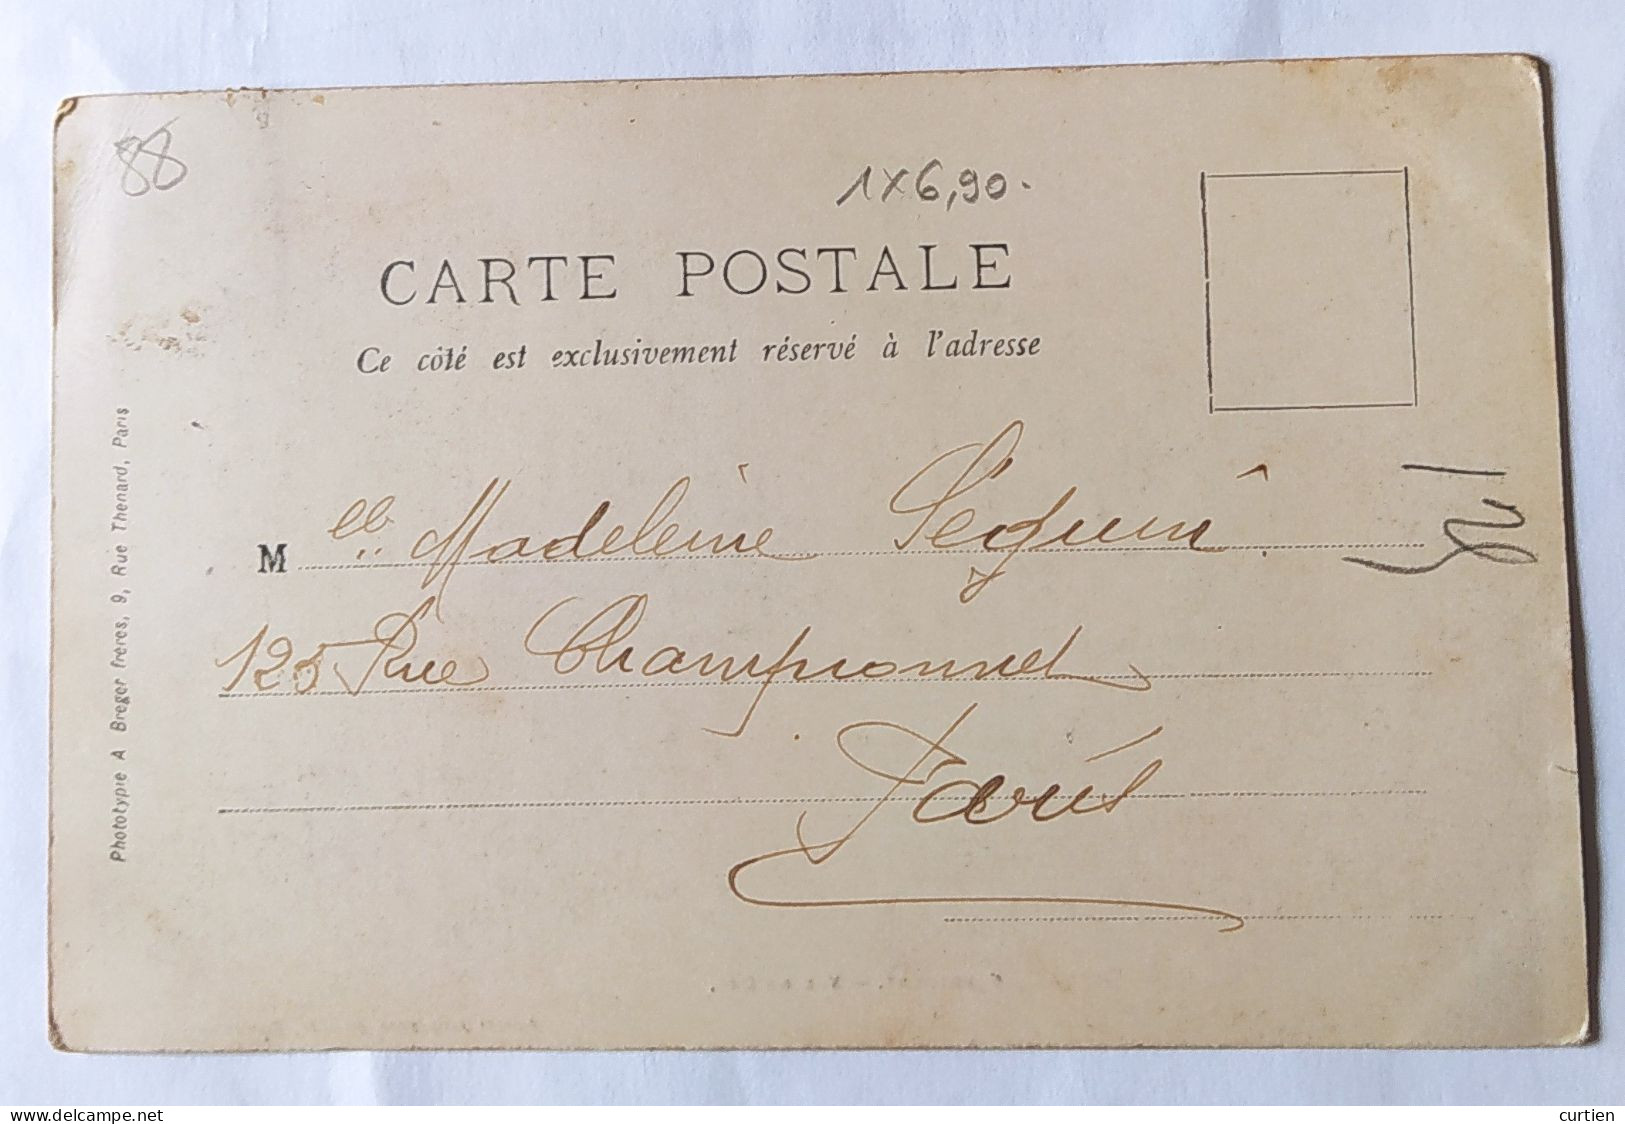 88
1 x 6,90.
CARTE POSTALE
Ce côté est exclusivement réservé à l'adresse
Mlle Madeleine Séguin
125 Rue Championnet
Paris
Phototypie A Breger frères, 9, Rue Thenard, Paris
www.delcampe.net
curtien